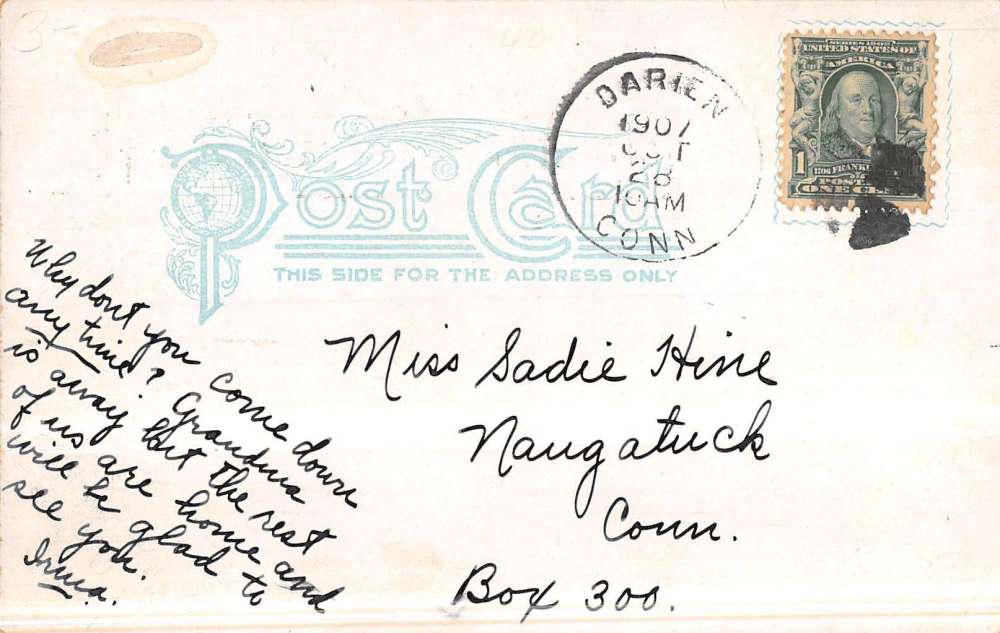 3-
40
DARIEN
1907
OCT
28
10AM
CONN
SERIES 1902
UNITED STATES OF
AMERICA
1
1706 FRANKLIN
POST
ONE CE
Post Card
THIS SIDE FOR THE ADDRESS ONLY
Why dont you come down
any time? Grandma
is away but the rest
of us are home and
will be glad to
see you.
Irma.
Miss Sadie Hine
Naugatuck
Conn.
Box 300.